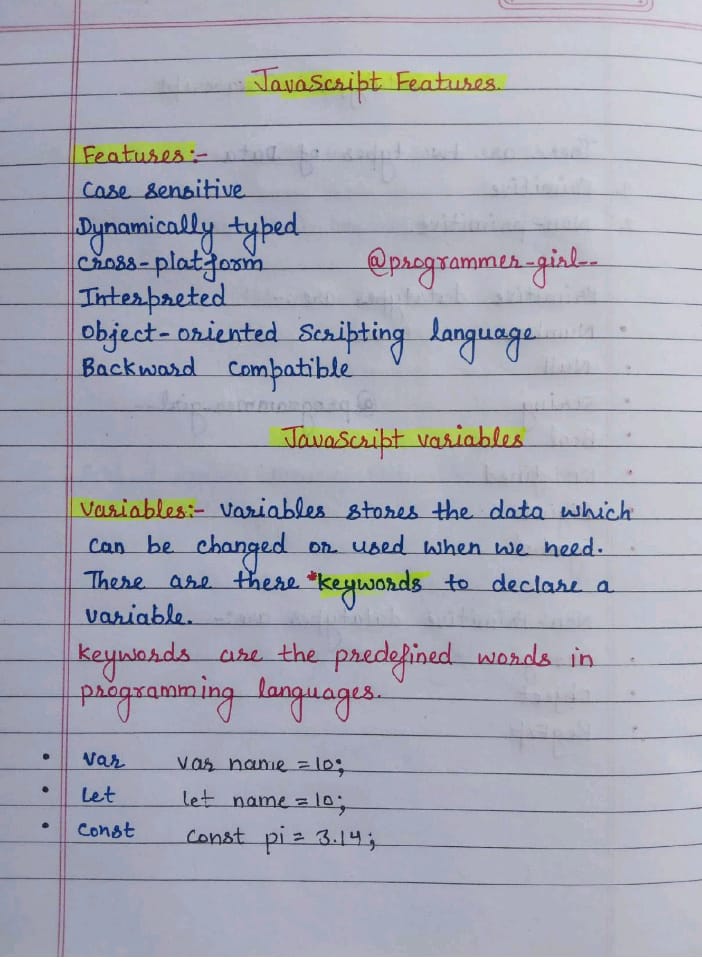 JavaScript Features.
Features :-
Case sensitive
Dynamically typed
cross-platform @programmer-girl--
Interpreted
object-oriented Scripting language
Backward compatible
JavaScript variables
Variables:- variables stores the data which
can be changed or used when we need.
There are there *keywords to declare a
variable.
keywords are the predefined words in
programming languages.
• var var name = 10;
• Let let name = 10;
• const const pi = 3.14;